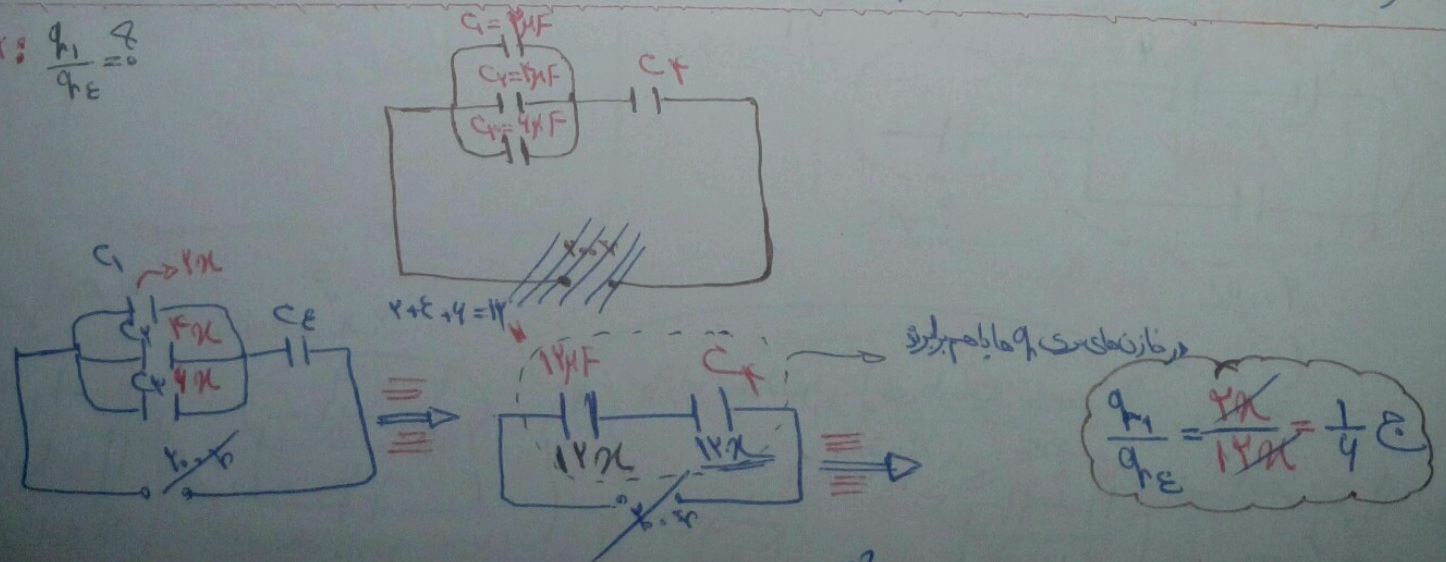 q₁/q₄ = ?
C₁ = ۲μF
C₂ = ۴μF
C₃ = ۶μF
C۴
C₁
۲x
C₂ ۴x
C₃ ۶x
C₄
۲+۴+۶=۱۲
۱۲μF
C۴
۱۲x
۱۲x
در خازن‌های سری q ها با هم برابرند
q₁/q₄ = ۲x/۱۲x = ۱/۶ ج